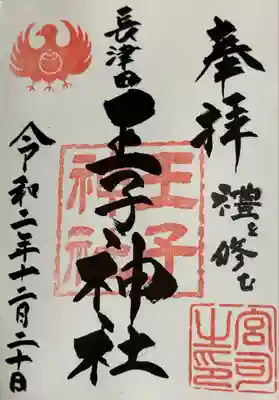 奉拝
禮を修む
長津田
王子神社
令和二年十二月二十日
王子
神社
宮司
之印